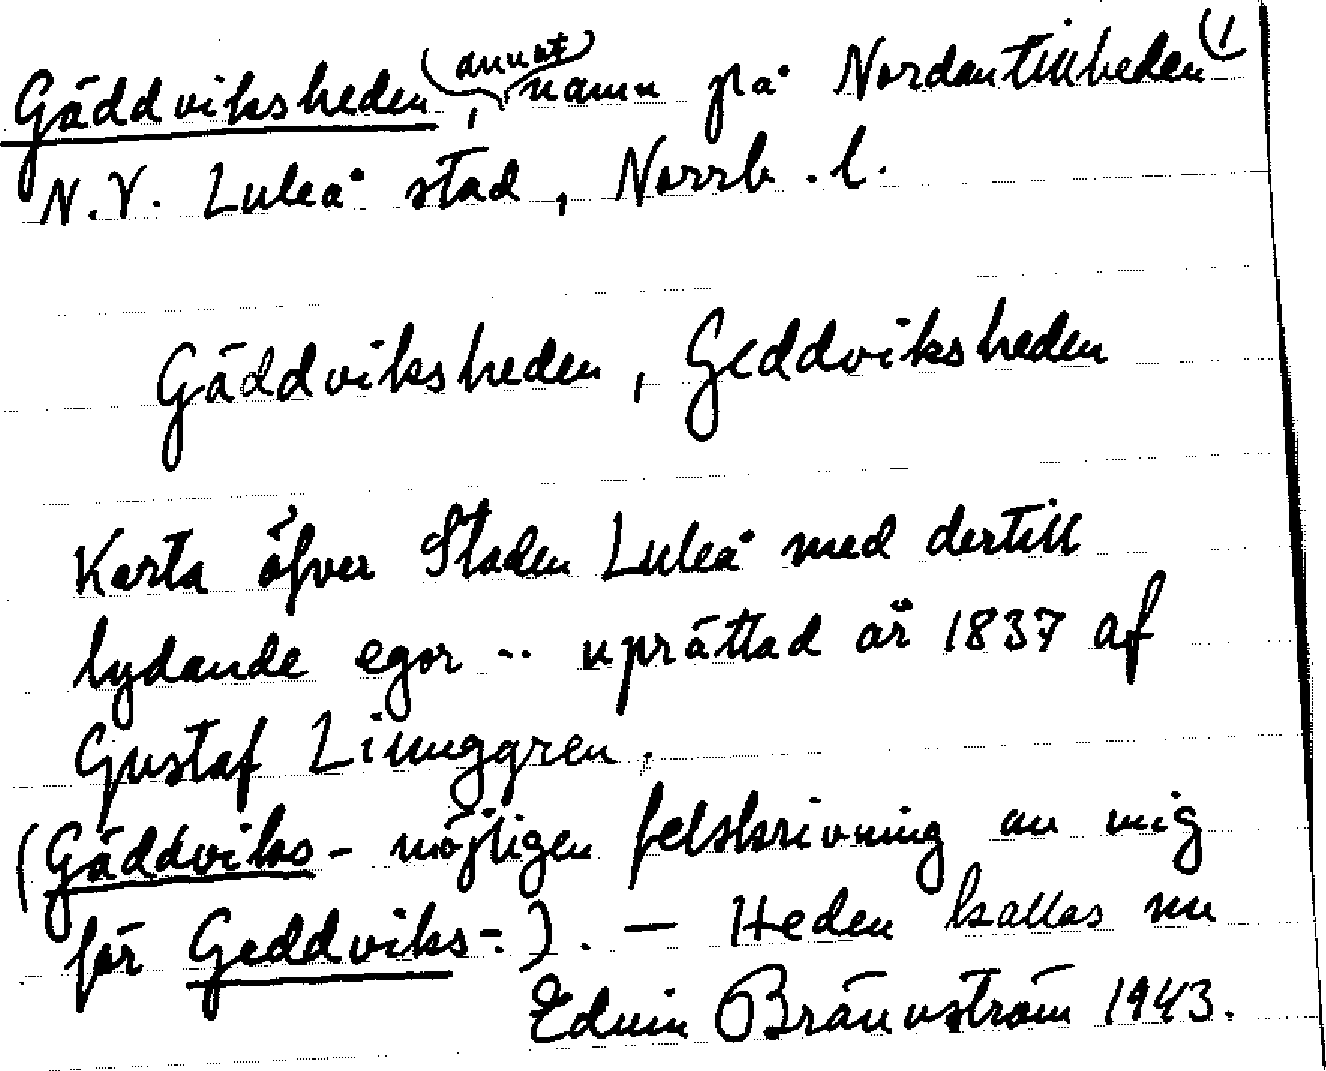 Gäddviksheden, (annat) namn på Nordantillheden (1
N.V. Luleå stad, Norrb. l.
Gäddviksheden, Geddviksheden
Karta öfver Staden Luleå med dertill
lydande egor -- uprättad år 1837 af
Gustaf Ljunggren.
(Gäddviks- möjligen felskrivning av mig
för Geddviks-). — Heden kallas nu
Edvin Brännström 1943.